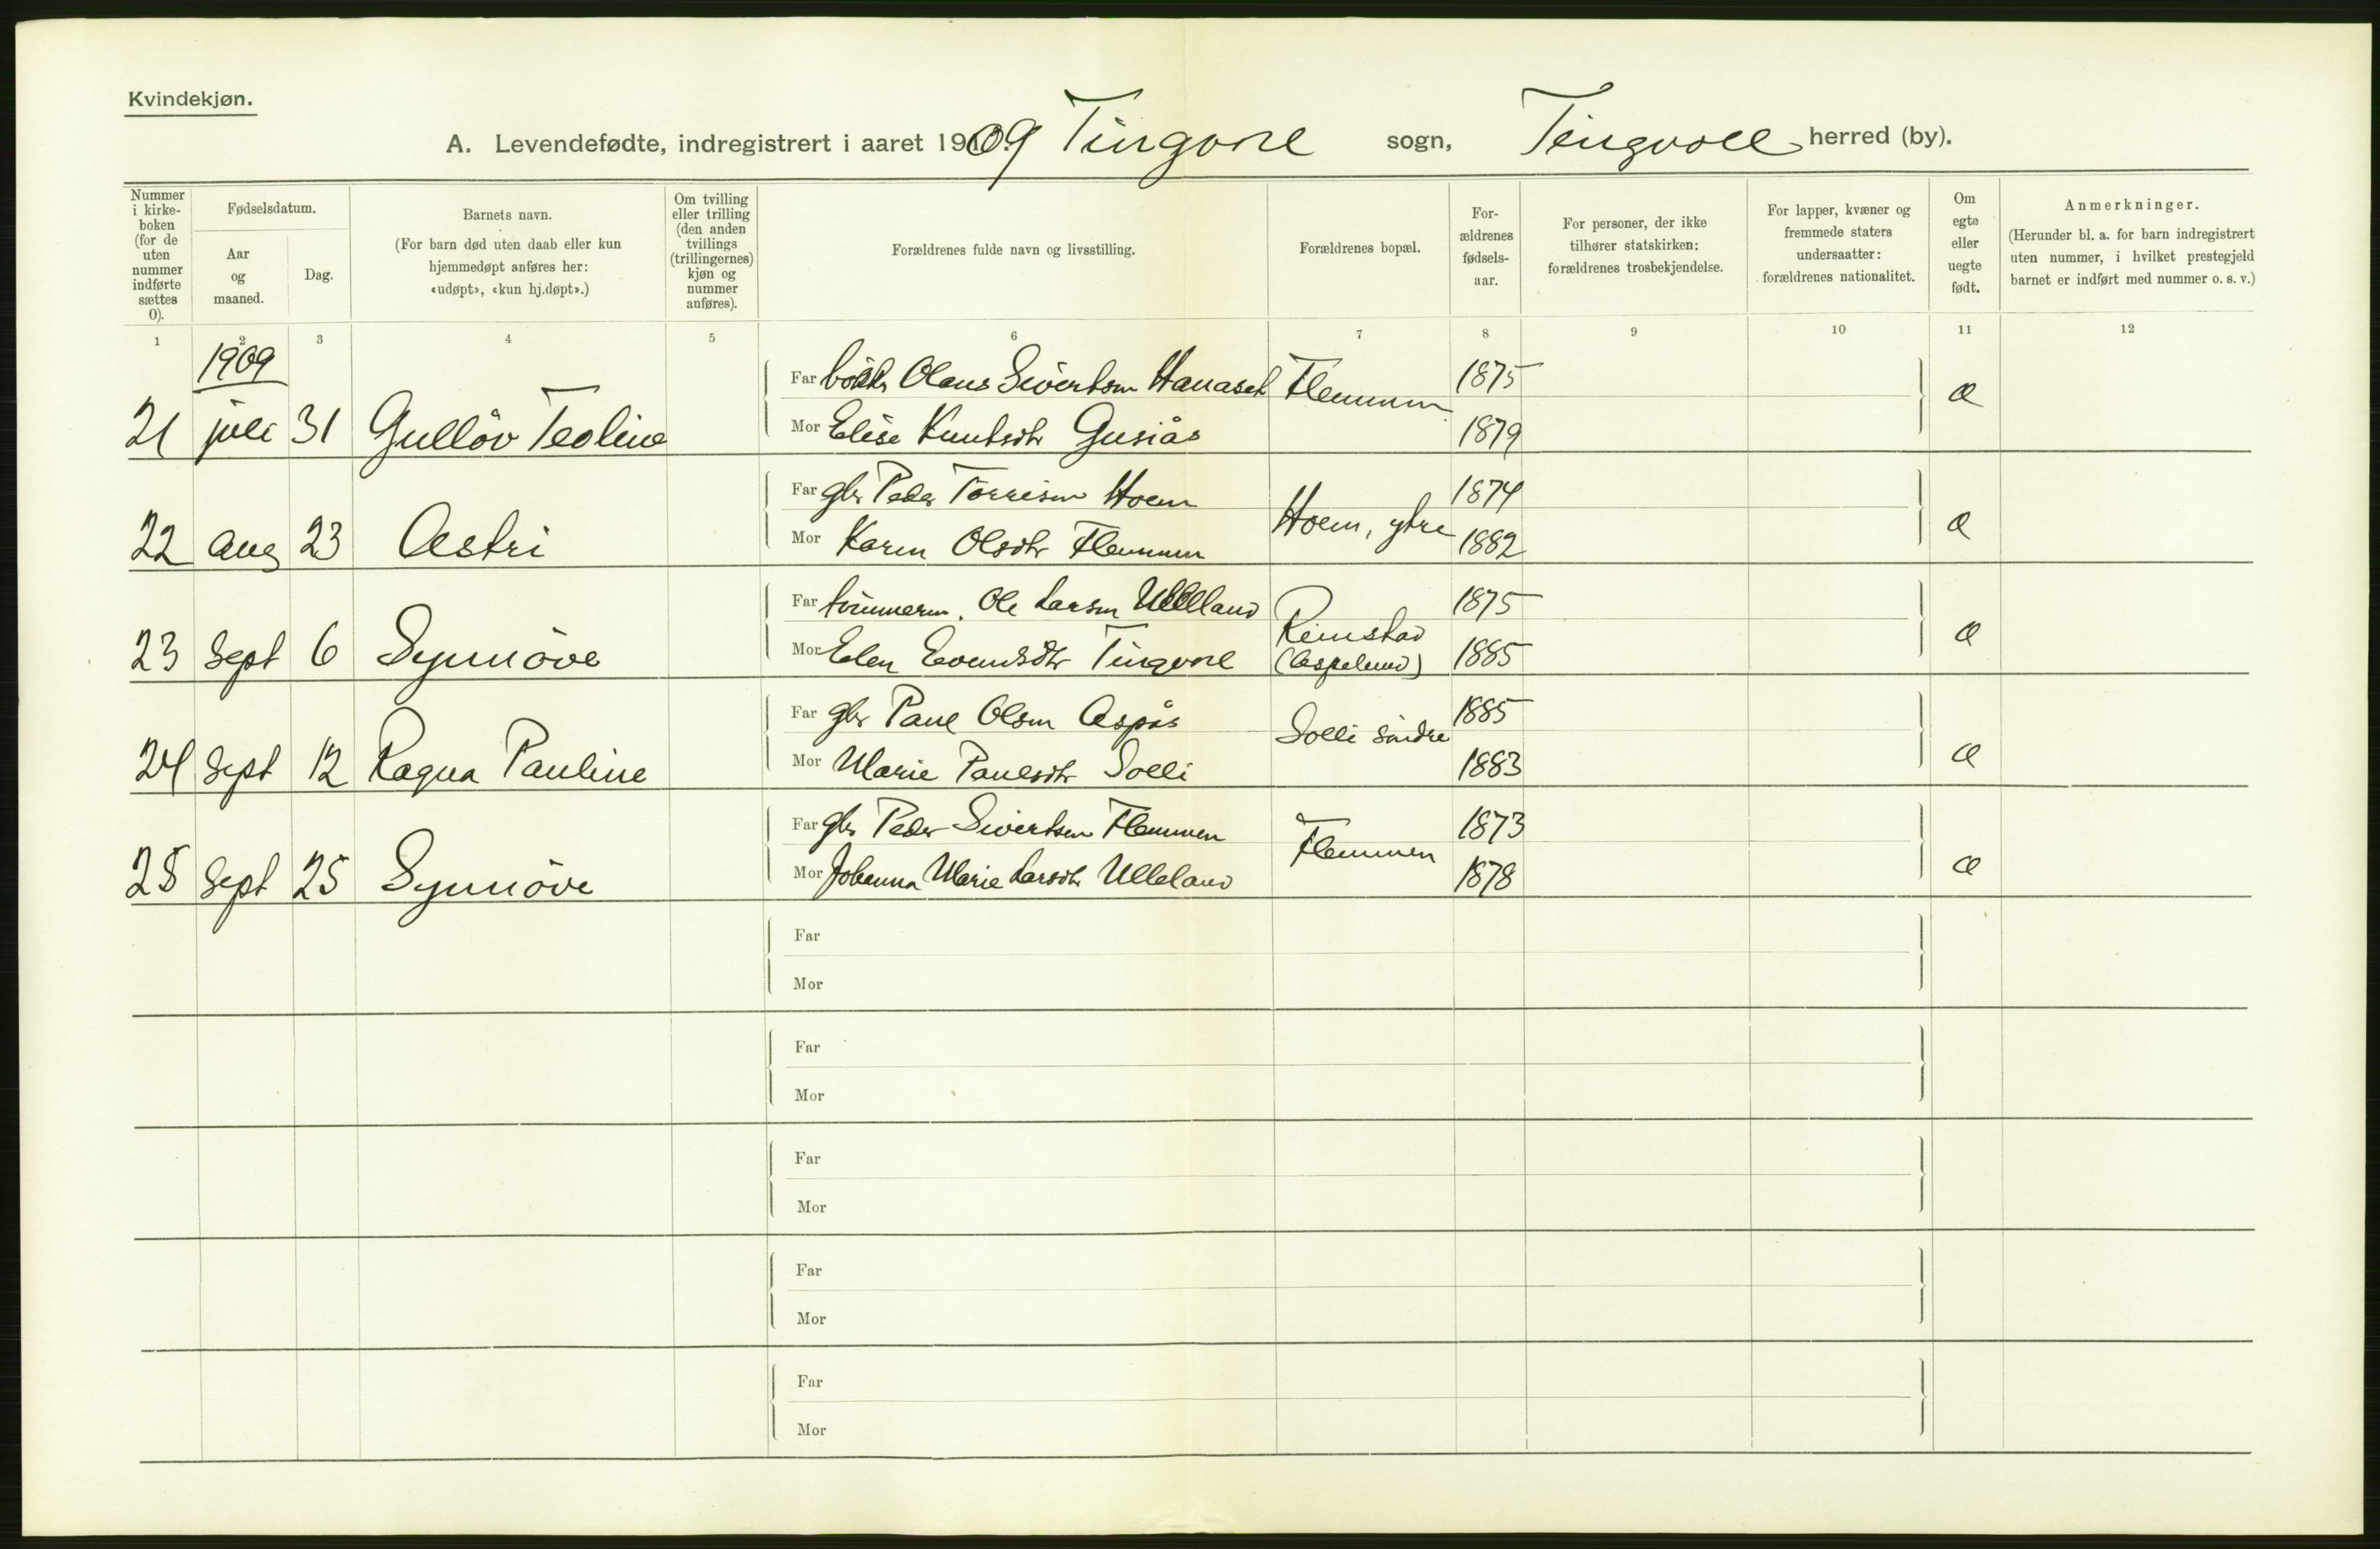 Kvindekjøn.
A. Levendefødte, indregistrert i aaret 1909 Tingvoll sogn, Tingvoll herred (by).
Nummer i kirke-boken (for de uten nummer indførte sættes 0).
Fødselsdatum.
Aar og maaned.
Dag.
Barnets navn.
(For barn død uten daab eller kun hjemmedøpt anføres her: «udøpt», «kun hj.døpt».)
Om tvilling eller trilling (den anden tvillings (trillingernes) kjøn og nummer anføres).
Forældrenes fulde navn og livsstilling.
Forældrenes bopæl.
For-ældrenes fødsels-aar.
For personer, der ikke tilhører statskirken: forældrenes trosbekjendelse.
For lapper, kvæner og fremmede staters undersaatter: forældrenes nationalitet.
Om egte eller uegte født.
Anmerkninger.
(Herunder bl. a. for barn indregistrert uten nummer, i hvilket prestegjeld barnet er indført med nummer o. s. v.)
1 2 3 4 5 6 7 8 9 10 11 12
1909
Far Olaus Sivertsen Hanaset Flemmen 1875
21 juli 31 Gulløv Teoline Mor Elise Knutsdtr Gusiås 1879 æ
Far gbr Peder Torrisen Hoem Hoem, ytre 1874
22 aug 23 Aestri Mor Karen Olsdtr Flemmen 1882 æ
Far tømmerm. Ole Larsen Ulleland Reinstad 1875
23 Sept 6 Synnöve Mor Elen Evensdtr Tingvoll (Aspelund) 1885 æ
Far gbr Paul Olsen Aspås Solli söndre 1885
24 Sept 12 Ragna Pauline Mor Marie Paulsdtr Solli 1883 æ
Far gbr Peder Sivertsen Flemmen Flemmen 1873
25 Sept 25 Synnöve Mor Johanna Marie Larsdtr Ulleland 1878 æ
Far
Mor
Far
Mor
Far
Mor
Far
Mor
Far
Mor